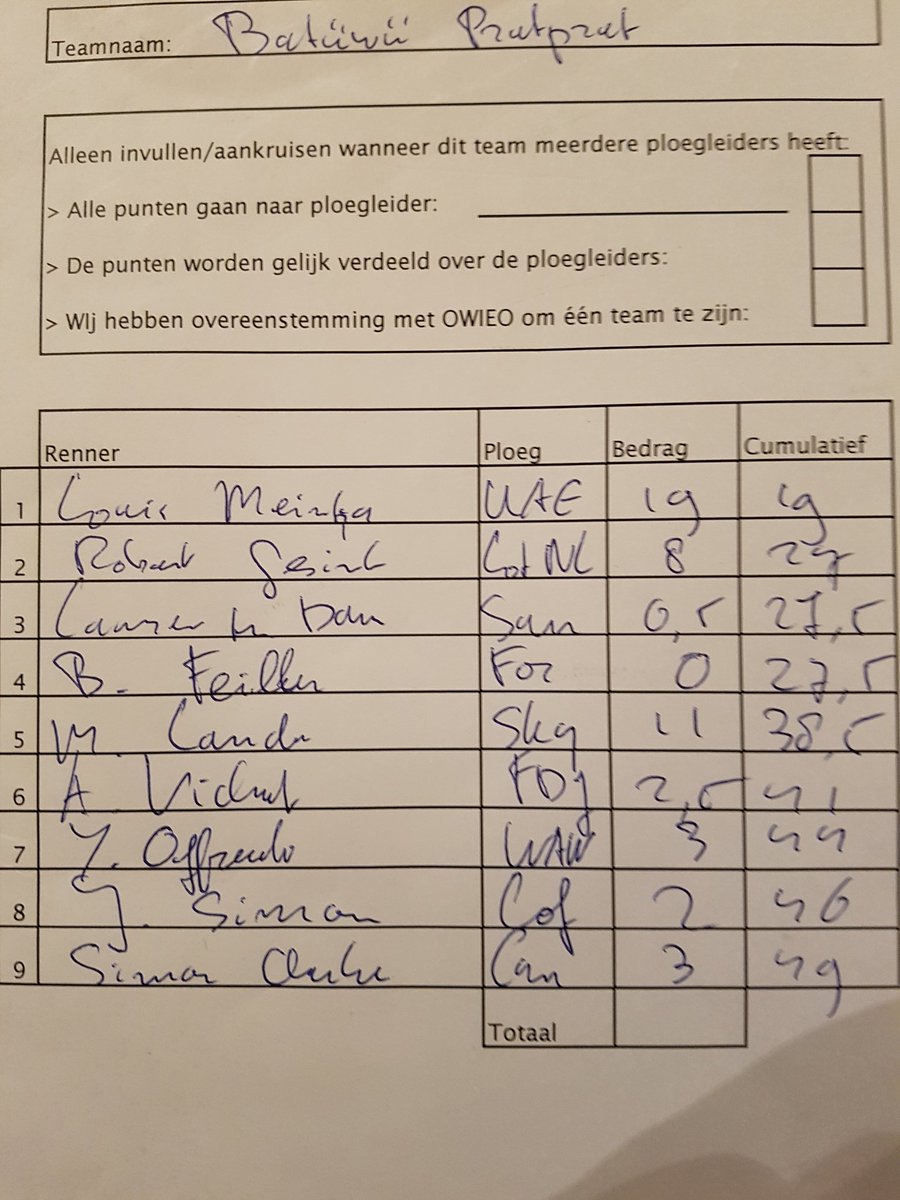 Teamnaam: Batüwü Pratprat
Alleen invullen/aankruisen wanneer dit team meerdere ploegleiders heeft:
> Alle punten gaan naar ploegleider:
> De punten worden gelijk verdeeld over de ploegleiders:
> WIj hebben overeenstemming met OWIEO om één team te zijn:
Renner Ploeg Bedrag Cumulatief
1 Louis Meintja UAE 19 19
2 Robert Gesink Lot NL 8 27
3 Laurens ten Dam Sun 0,5 27,5
4 B. Feillu For 0 27,5
5 M. Landa Sky 11 38,5
6 A. Vichot FDJ 2,5 41
7 Y. Offredo WAW 3 44
8 J. Simon Cof 2 46
9 Simon Clarke Can 3 49
Totaal